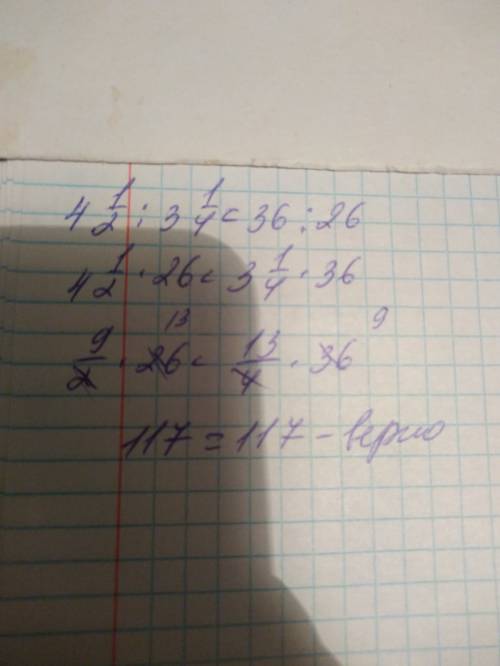 4 1/2 : 3 1/4 = 36 : 26
4 1/2 · 26 = 3 1/4 · 36
13 9
9/2 · 26 = 13/4 · 36
117 = 117 - верно